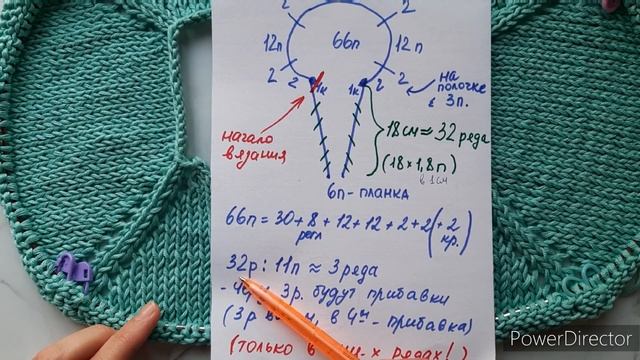 2 2
12п 66п 12п
2 2 1к 1к 2 2
на
полочке
3п.
начало
вязания
18см ≈ 32 реда
(18 × 1,8п)
в 1см
6п - планка
66п = 30 + 8 + 12 + 12 + 2 + 2 (+ 2
регл кр.)
32р : 11п ≈ 3 реда
3р. будут прибавки
(3р в 4й - прибавка)
(только в х редах!)
PowerDirector